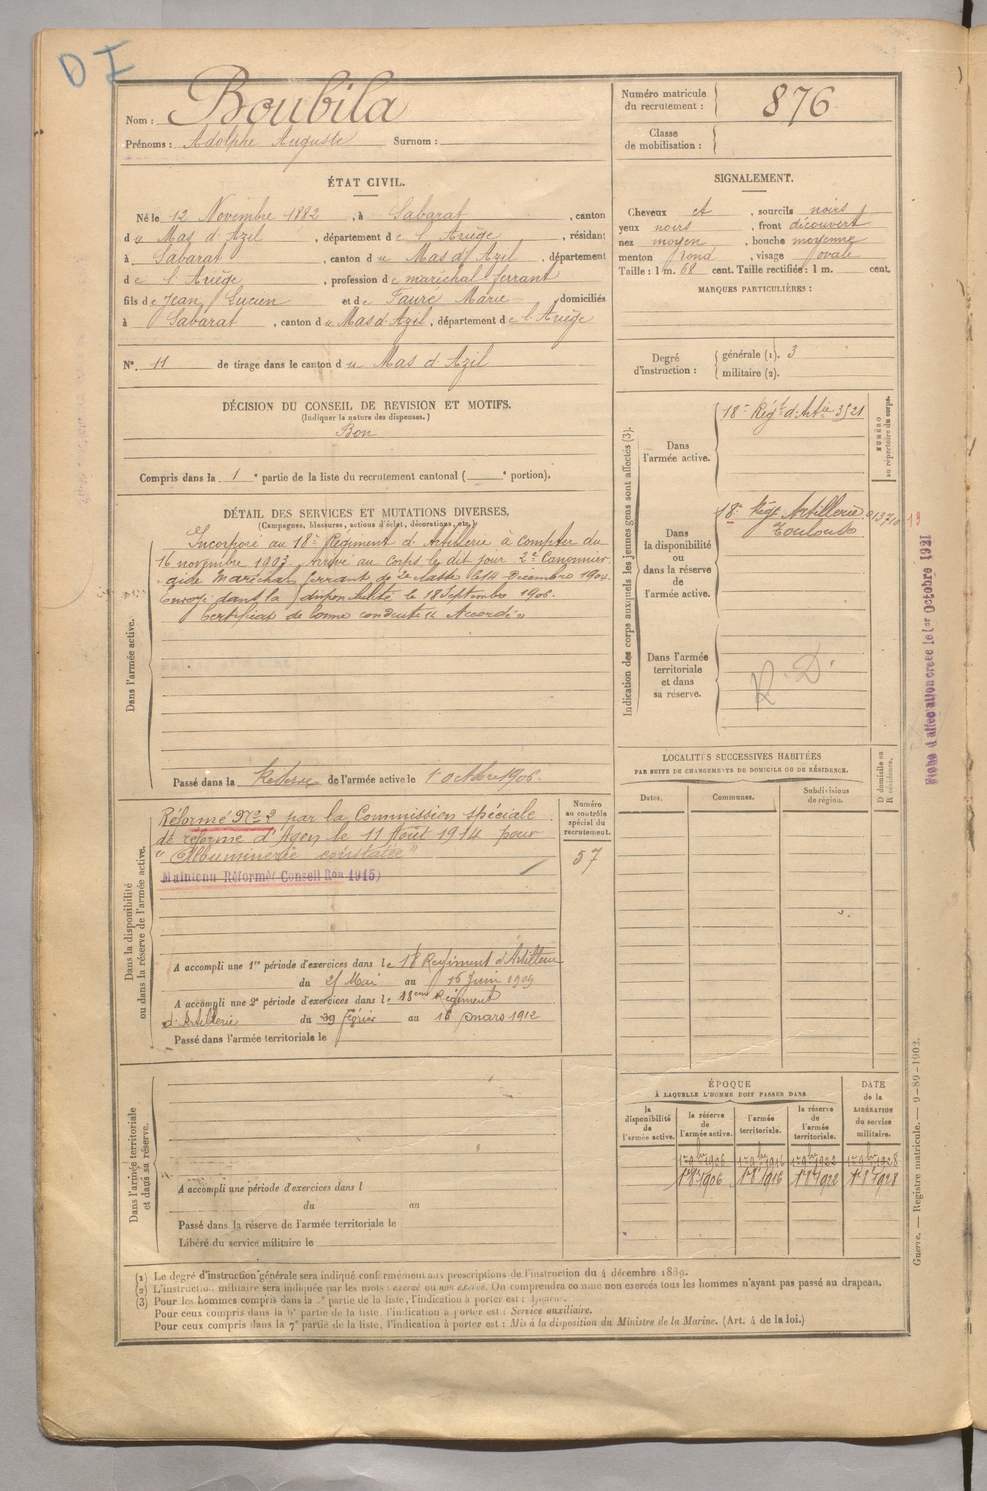 D I
Nom : Boubila
Prénoms : Adolphe Auguste Surnom :
ÉTAT CIVIL.
Né le 12 Novembre 1882, à Sabarat, canton
du Mas d'Azil, département de l'Ariège, résidant
à Sabarat, canton du Mas d'Azil, département
de l'Ariège, profession de maréchal ferrant
fils de Jean Lucien et de Fauré Marie domiciliés
à Sabarat, canton du Mas d'Azil, département de l'Ariège
N°. 11 de tirage dans le canton du Mas d'Azil
DÉCISION DU CONSEIL DE REVISION ET MOTIFS.
(Indiquer la nature des dispenses.)
Bon
Compris dans la 1e partie de la liste du recrutement cantonal ( e portion).
DÉTAIL DES SERVICES ET MUTATIONS DIVERSES.
(Campagnes, blessures, actions d'éclat, décorations, etc.)
Dans l'armée active.
Incorporé au 18e Régiment d'Artillerie à compter du
16 novembre 1903, arrivé au corps le dit jour 2e Canonnier
aide Maréchal ferrant de 2e classe le 14 Décembre 1904.
Envoyé dans la disponibilité le 18 Septembre 1906.
Certificat de bonne conduite "Accordé"
Passé dans la Réserve de l'armée active le 1er octobre 1906.
Dans la disponibilité
ou dans la réserve de l'armée active.
Réformé No 2 par la Commission spéciale
de réforme d'Agen le 11 Août 1914 pour
"Albuminerie constatée"
Maintenu Réformé (Conseil Ron 1915)
Numéro
au contrôle
spécial du
recrutement.
57
A accompli une 1re période d'exercices dans le 18 Regiment d'Artillerie
du 25 Mai au 16 Juin 1909
A accompli une 2e période d'exercices dans le 18eme Régiment
d'Artillerie du 29 février au 16 mars 1912
Passé dans l'armée territoriale le
Dans l'armée territoriale
et dans sa réserve.
A accompli une période d'exercices dans l
du au
Passé dans la réserve de l'armée territoriale le
Libéré du service militaire le
Numéro matricule
du recrutement : 876
Classe
de mobilisation :
SIGNALEMENT.
Cheveux et, sourcils noirs
yeux noirs, front découvert
nez moyen, bouche moyenne
menton rond, visage ovale
Taille : 1 m. 68 cent. Taille rectifiée : 1 m. cent.
MARQUES PARTICULIÈRES :
Degré
d'instruction :
générale (1). 3
militaire (2).
Indication des corps auxquels les jeunes gens sont affectés (3).
NUMÉRO
au répertoire du corps.
Dans
l'armée active.
18e Régt d'Artie 3521
Dans
la disponibilité
ou
dans la réserve
de
l'armée active.
18e Régt Artillerie
Toulouse
Dans l'armée
territoriale
et dans
sa réserve.
R. D.
Fiche d'affectation créée le 1er Octobre 1921
LOCALITÉS SUCCESSIVES HABITÉES
PAR SUITE DE CHANGEMENTS DE DOMICILE OU DE RÉSIDENCE.
Dates.
Communes.
Subdivisions
de région.
D domicile ou
R résidence.
ÉPOQUE
À LAQUELLE L'HOMME DOIT PASSER DANS
DATE
de la
LIBÉRATION
du service
militaire.
la
disponibilité
de
l'armée active.
la réserve
de
l'armée active.
l'armée
territoriale.
la réserve
de
l'armée
territoriale.
1er 9bre 1906 1er 9bre 1916 1er 9bre 1922 1er 9bre 1928
1er 8bre 1906 1er 8bre 1916 1er 8bre 1922 1er 8bre 1928
Guerre. — Registre matricule. — 9-89-1902.
(1) Le degré d'instruction générale sera indiqué conformément aux prescriptions de l'instruction du 4 décembre 1889.
(2) L'instruction militaire sera indiquée par les mots : exercé ou non exercé. On comprendra comme non exercés tous les hommes n'ayant pas passé au drapeau.
(3) Pour les hommes compris dans la partie de la liste, l'indication à porter est :
Pour ceux compris dans la partie de la liste, l'indication à porter est : Service auxiliaire.
Pour ceux compris dans la 7e partie de la liste, l'indication à porter est : Mis à la disposition du Ministre de la Marine. (Art. 4 de la loi.)